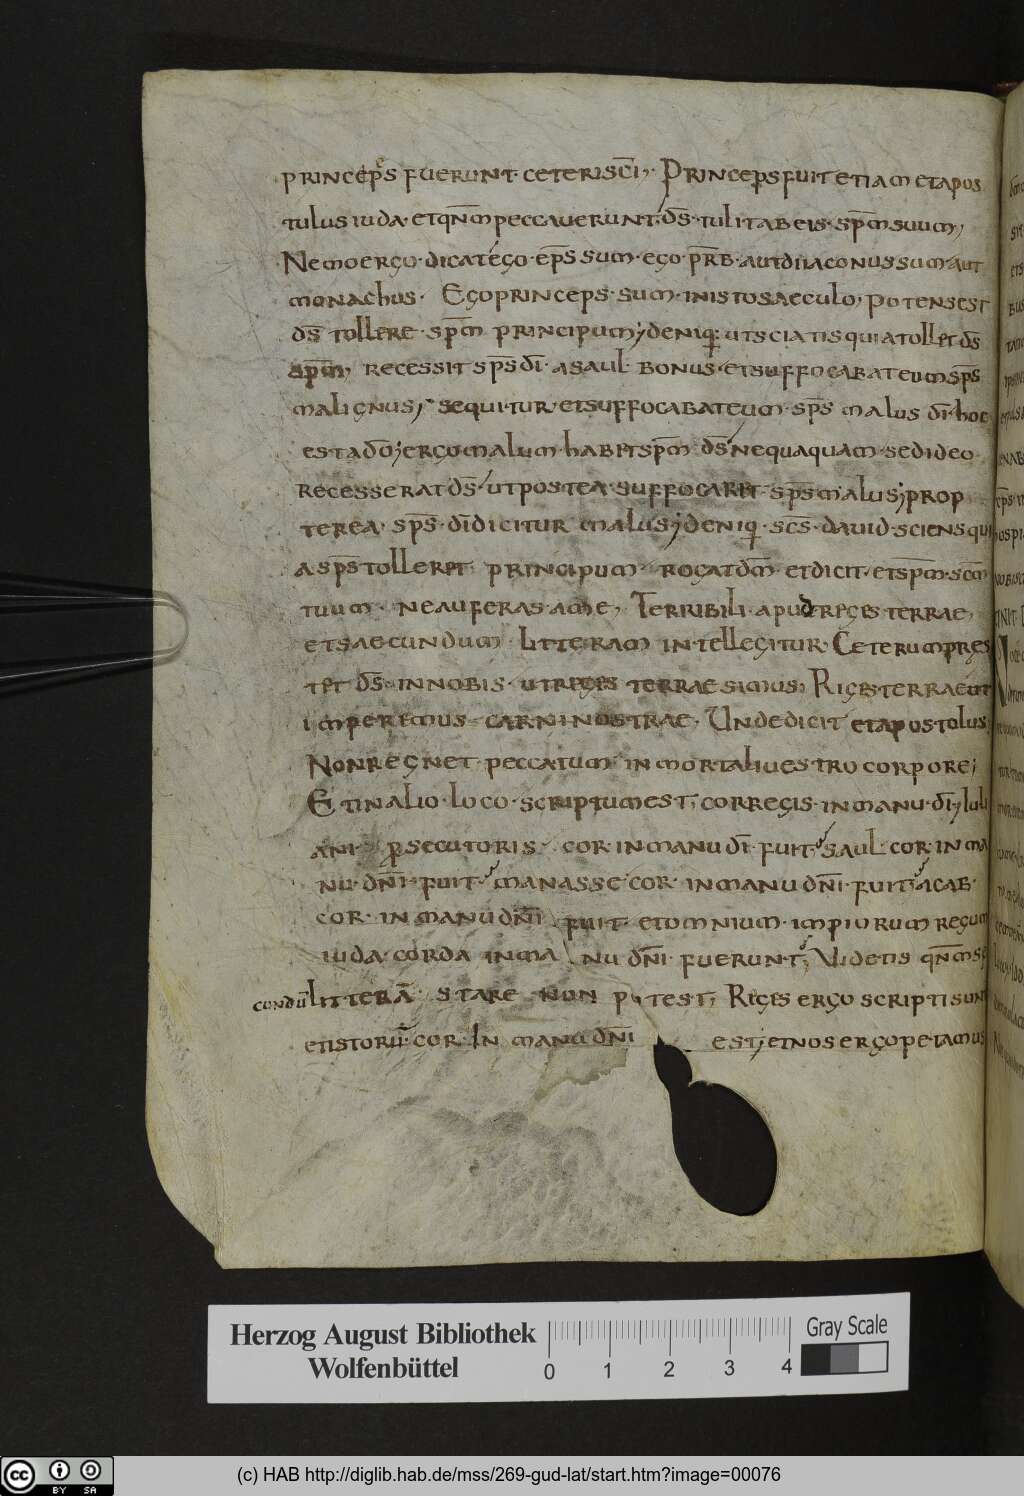 princeps fuerunt· ceteris c̄i; Princeps fuit etiam et apos
tulus iuda· et qn̄m peccauerunt; d̄s· tulit ab eis· sp̄m suum;
Nemo ergo· dicat ego· ep̄s sum· ego· pr̄b· aut diaconus sum· aut
monachus· Ego princeps· sum· in isto saeculo; potens est
d̄s tollere· sp̄m principum; deniq; ut sciatis quia tollet d̄s
sp̄m; recessit sp̄s d̄i· a saul· bonus· et suffocabat eum sp̄s
malignus; sequitur· et suffocabat eum· sp̄s malus d̄i· hoc
est a d̄o; ergo malum· habit sp̄m d̄s nequaquam· sed ideo
recesserat d̄s· ut postea· suffocaret· sp̄s malus; prop
terea· sp̄s· d̄i dicitur malus; deniq· sc̄s· dauid· sciens qui
a sp̄s tolleret principum· rogat d̄m· et dicit· et sp̄m· sc̄m
tuum· ne auferas· a me; Terribili· apud reges terrae;
et saecundum litteram intellegitur· Ceterum preş
tet d̄s· in nobis· ut reges terrae simus; Riges terrae ut
imperemus carni nostrae· Unde dicit et apostolus;
Non regnet· peccatum· in mortali uestro corpore;
Et in alio· loco· scriptum est; cor regis· in manu· d̄i; luli
ani· persecutoris· cor· in manu d̄i· fuit· saul· cor· in ma
nu· dn̄i· fuit· manasse· cor· in manu dn̄i· fuit· acab·
cor· in manu dn̄i fuit· et omnium· impiorum regum
iuda· corda in ma nu dn̄i· fuerunt; Uidetis qn̄m se
cundū litterā· stare non potest; Reges ergo scripti sunt
et istorū· cor· in manu dn̄i est; et nos ergo petamus
Herzog August Bibliothek
Wolfenbüttel
0 1 2 3 4
Gray Scale
cc BY SA
(c) HAB http://diglib.hab.de/mss/269-gud-lat/start.htm?image=00076